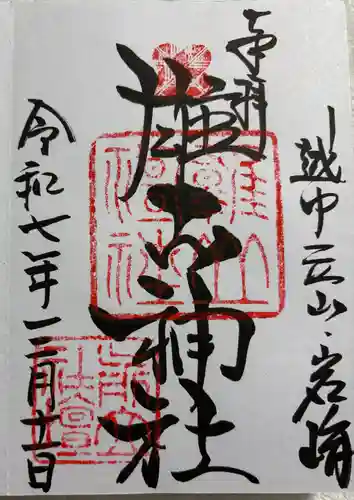 奉拝
越中立山・岩峅
雄山神社
雄山
神社
前立
社壇
令和七年三月廿日